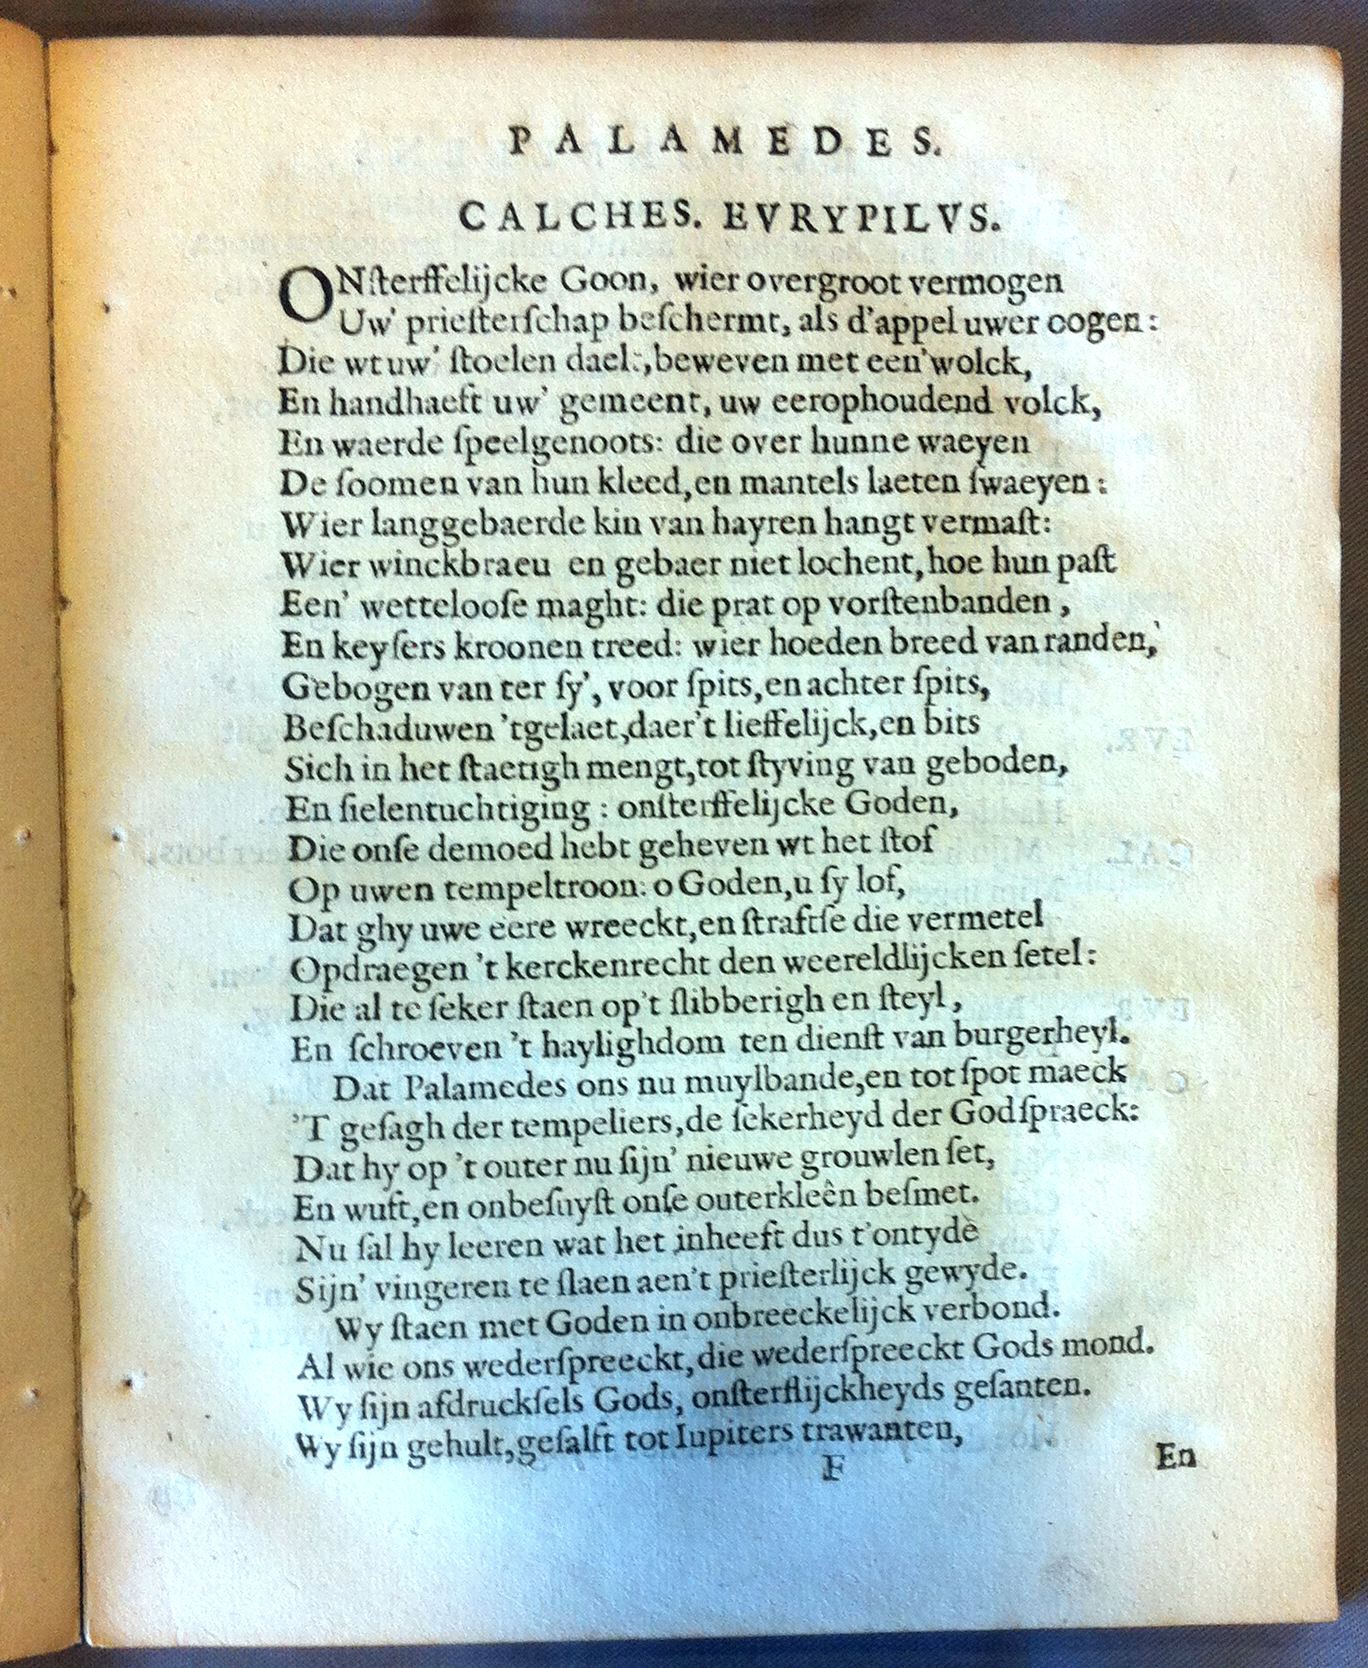 PALAMEDES.
CALCHES. EVRYPILVS.
ONſterffelijcke Goon, wier overgroot vermogen
Uw' prieſterſchap beſchermt, als d'appel uwer oogen:
Die wt uw' ſtoelen daelt, beweven met een' wolck,
En handhaeft uw' gemeent, uw eerophoudend volck,
En waerde ſpeelgenoots: die over hunne waeyen
De ſoomen van hun kleed, en mantels laeten ſwaeyen:
Wier langgebaerde kin van hayren hangt vermaſt:
Wier winckbraeu en gebaer niet lochent, hoe hun paſt
Een' wettelooſe maght: die prat op vorſtenbanden,
En keyſers kroonen treed: wier hoeden breed van randen,
Gebogen van ter ſy', voor ſpits, en achter ſpits,
Beſchaduwen 'tgelaet, daer't lieffelijck, en bits
Sich in het ſtaetigh mengt, tot ſtyving van geboden,
En ſielentuchtiging: onſterffelijcke Goden,
Die onſe demoed hebt geheven wt het ſtof
Op uwen tempeltroon: o Goden, u ſy lof,
Dat ghy uwe eere wreeckt, en ſtraftſe die vermetel
Opdraegen 't kerckenrecht den weereldlijcken ſetel:
Die al te ſeker ſtaen op't ſlibberigh en ſteyl,
En ſchroeven 't haylighdom ten dienſt van burgerheyl.
Dat Palamedes ons nu muylbande, en tot ſpot maeck
'T geſagh der tempeliers, de ſekerheyd der Godſpraeck:
Dat hy op 't outer nu ſijn' nieuwe grouwlen ſet,
En wuft, en onbeſuyſt onſe outerkleên beſmet.
Nu ſal hy leeren wat het inheeft dus t'ontydè
Sijn' vingeren te ſlaen aen't prieſterlijck gewyde.
Wy ſtaen met Goden in onbreeckelijck verbond.
Al wie ons wederſpreeckt, die wederſpreeckt Gods mond.
Wy ſijn afdruckſels Gods, onſterflijckheyds geſanten.
Wy ſijn gehult, geſalft tot Iupiters trawanten,
F
En